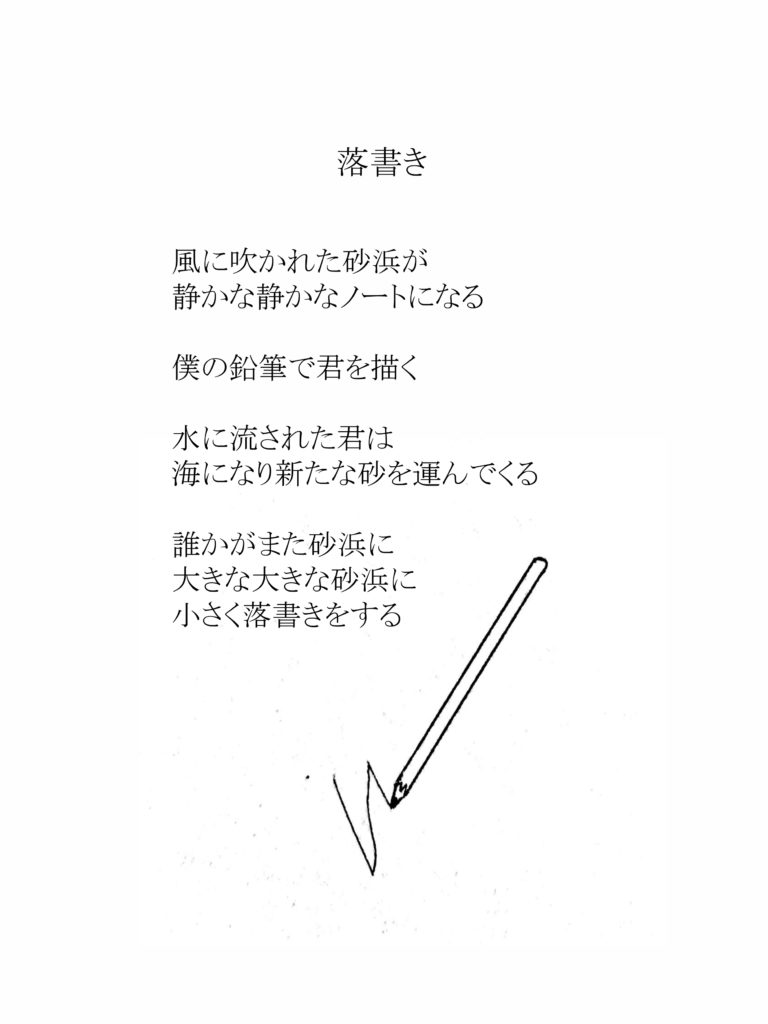 落書き
風に吹かれた砂浜が
静かな静かなノートになる
僕の鉛筆で君を描く
水に流された君は
海になり新たな砂を運んでくる
誰かがまた砂浜に
大きな大きな砂浜に
小さく落書きをする